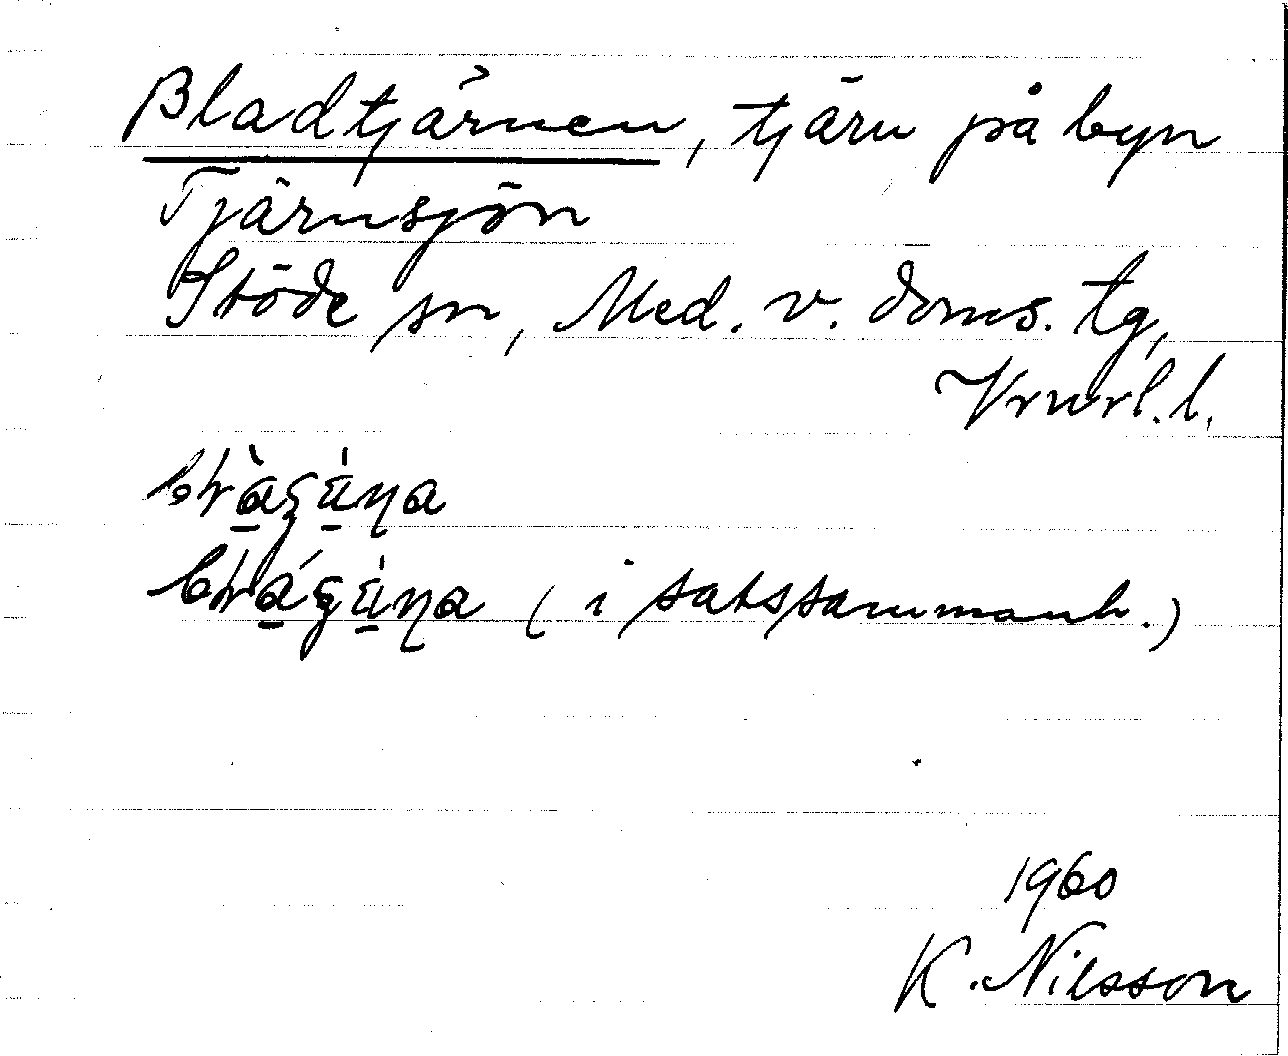 Bladtjärnen, tjärn på byn
Tjärnsjön
Stöde sn, Med. v. doms. tg,
Vrnrl. l.
(i satssammanh.)
1960
K. Nilsson